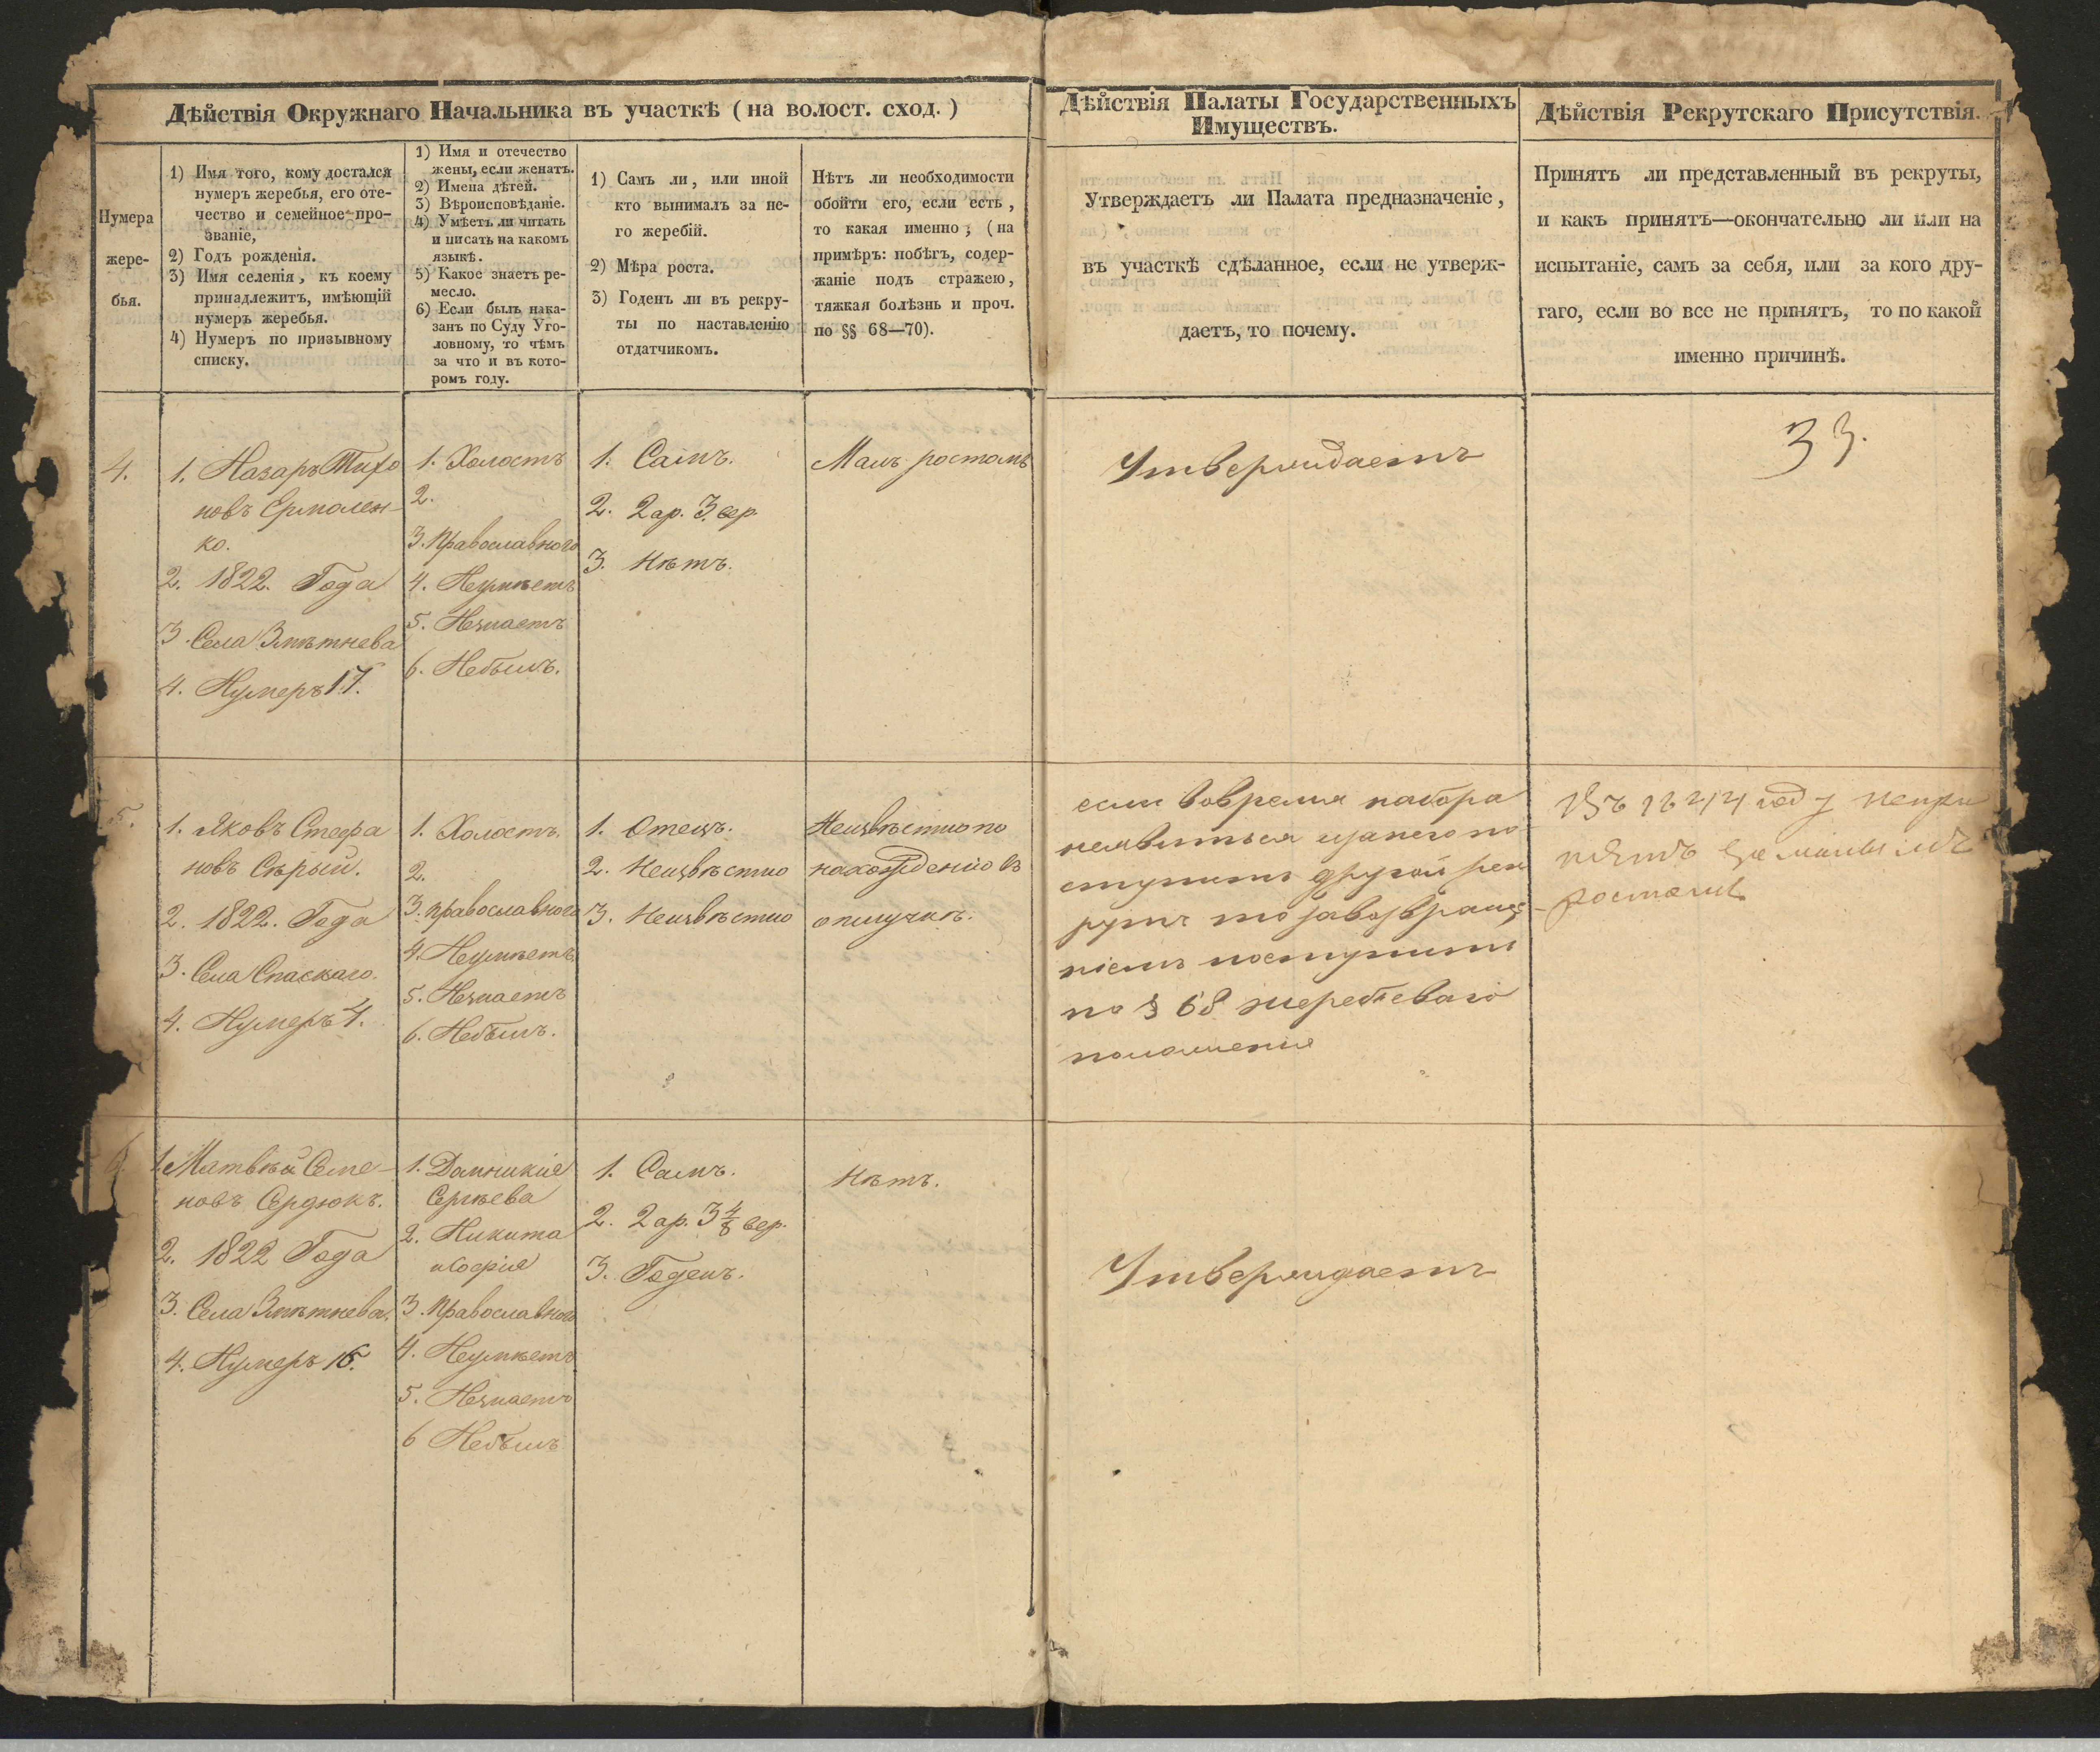 Дѣйствія Окружнаго Начальника въ участкѣ ( на волост. сход. )
Нумера
жере-
бья.
1) Имя того, кому достался
нумеръ жеребья, его оте-
чество и семейное про-
званіе,
2) Годъ рожденія.
3) Имя селенія, къ коему
принадлежитъ, имѣющій
нумеръ жеребья.
4) Нумеръ по призывному
списку.
1) Имя и отечество
жены, если женатъ.
2) Имена дѣтей.
3) Вѣроисповѣданіе.
4) Умѣетъ ли читать
и писать на какомъ
языкѣ.
5) Какое знаетъ ре-
месло.
6) Если былъ нака-
занъ по Суду Уго-
ловному, то чѣмъ
за что и въ кото-
ромъ году.
1) Самъ ли, или иной
кто вынималъ за не-
го жеребій.
2) Мѣра роста.
3) Годенъ ли въ рекру-
ты по наставленію
отдатчикомъ.
Нѣтъ ли необходимости
обойти его, если есть,
то какая именно, (на
примѣръ: побѣгъ, содер-
жаніе подъ стражею,
тяжкая болѣзнь и проч.
по §§ 68—70).
Дѣйствія Палаты Государственныхъ
Имуществъ.
Утверждаетъ ли Палата предназначеніе,
въ участкѣ сдѣланное, если не утверж-
даетъ, то почему.
Дѣйствія Рекрутскаго Присутствія.
Принятъ ли представленный въ рекруты,
и какъ принятъ—окончательно ли или на
испытаніе, самъ за себя, или за кого дру-
гаго, если во все не принятъ, то по какой
именно причинѣ.
33.
4.
1. Назаръ Тихо
новъ Ермолен-
ко.
2. 1822. Года
3. Села Змѣтнева
4. Нумеръ 17.
1. Холостъ
2.
3. Православного
4. Неумѣетъ
5. Незнаетъ
6. Небылъ.
1. Самъ.
2. 2 ар. 3. вер.
3. Нѣтъ.
Малъ ростомъ
Утверждаетъ
5.
1. Яковъ Стефа
новъ Сѣрый.
2. 1822. Года
3. Села Спаскаго.
4. Нумеръ 4.
1. Холостъ.
2.
3. Православного
4. Неумѣетъ
5. Незнаетъ
6. Небылъ.
1. Отецъ.
2. Неизвѣстно
3. Неизвѣстно
Неизвѣстно по
нахожденію въ
отлучкѣ.
если вовремя набора
неявиться изанего по
ступитъ другой рек
рутъ то завозвраще
ніемъ поступить
по § 68 жеребеваго
положенія
году непри
нятъ малымъ
ростомъ
6.
1. Матвѣй Семе-
новъ Сердюкъ.
2. 1822 Года
3. Села Змѣтнева.
4. Нумеръ 16.
1. Домникія
Сергѣева
2. Никита
и Софія
3. Православного
4. Неумѣетъ
5. Незнаетъ
6 Небылъ
1. Самъ.
2. 2 ар. 3 4/8 вер.
3. Годенъ.
Нѣтъ.
Утверждаетъ